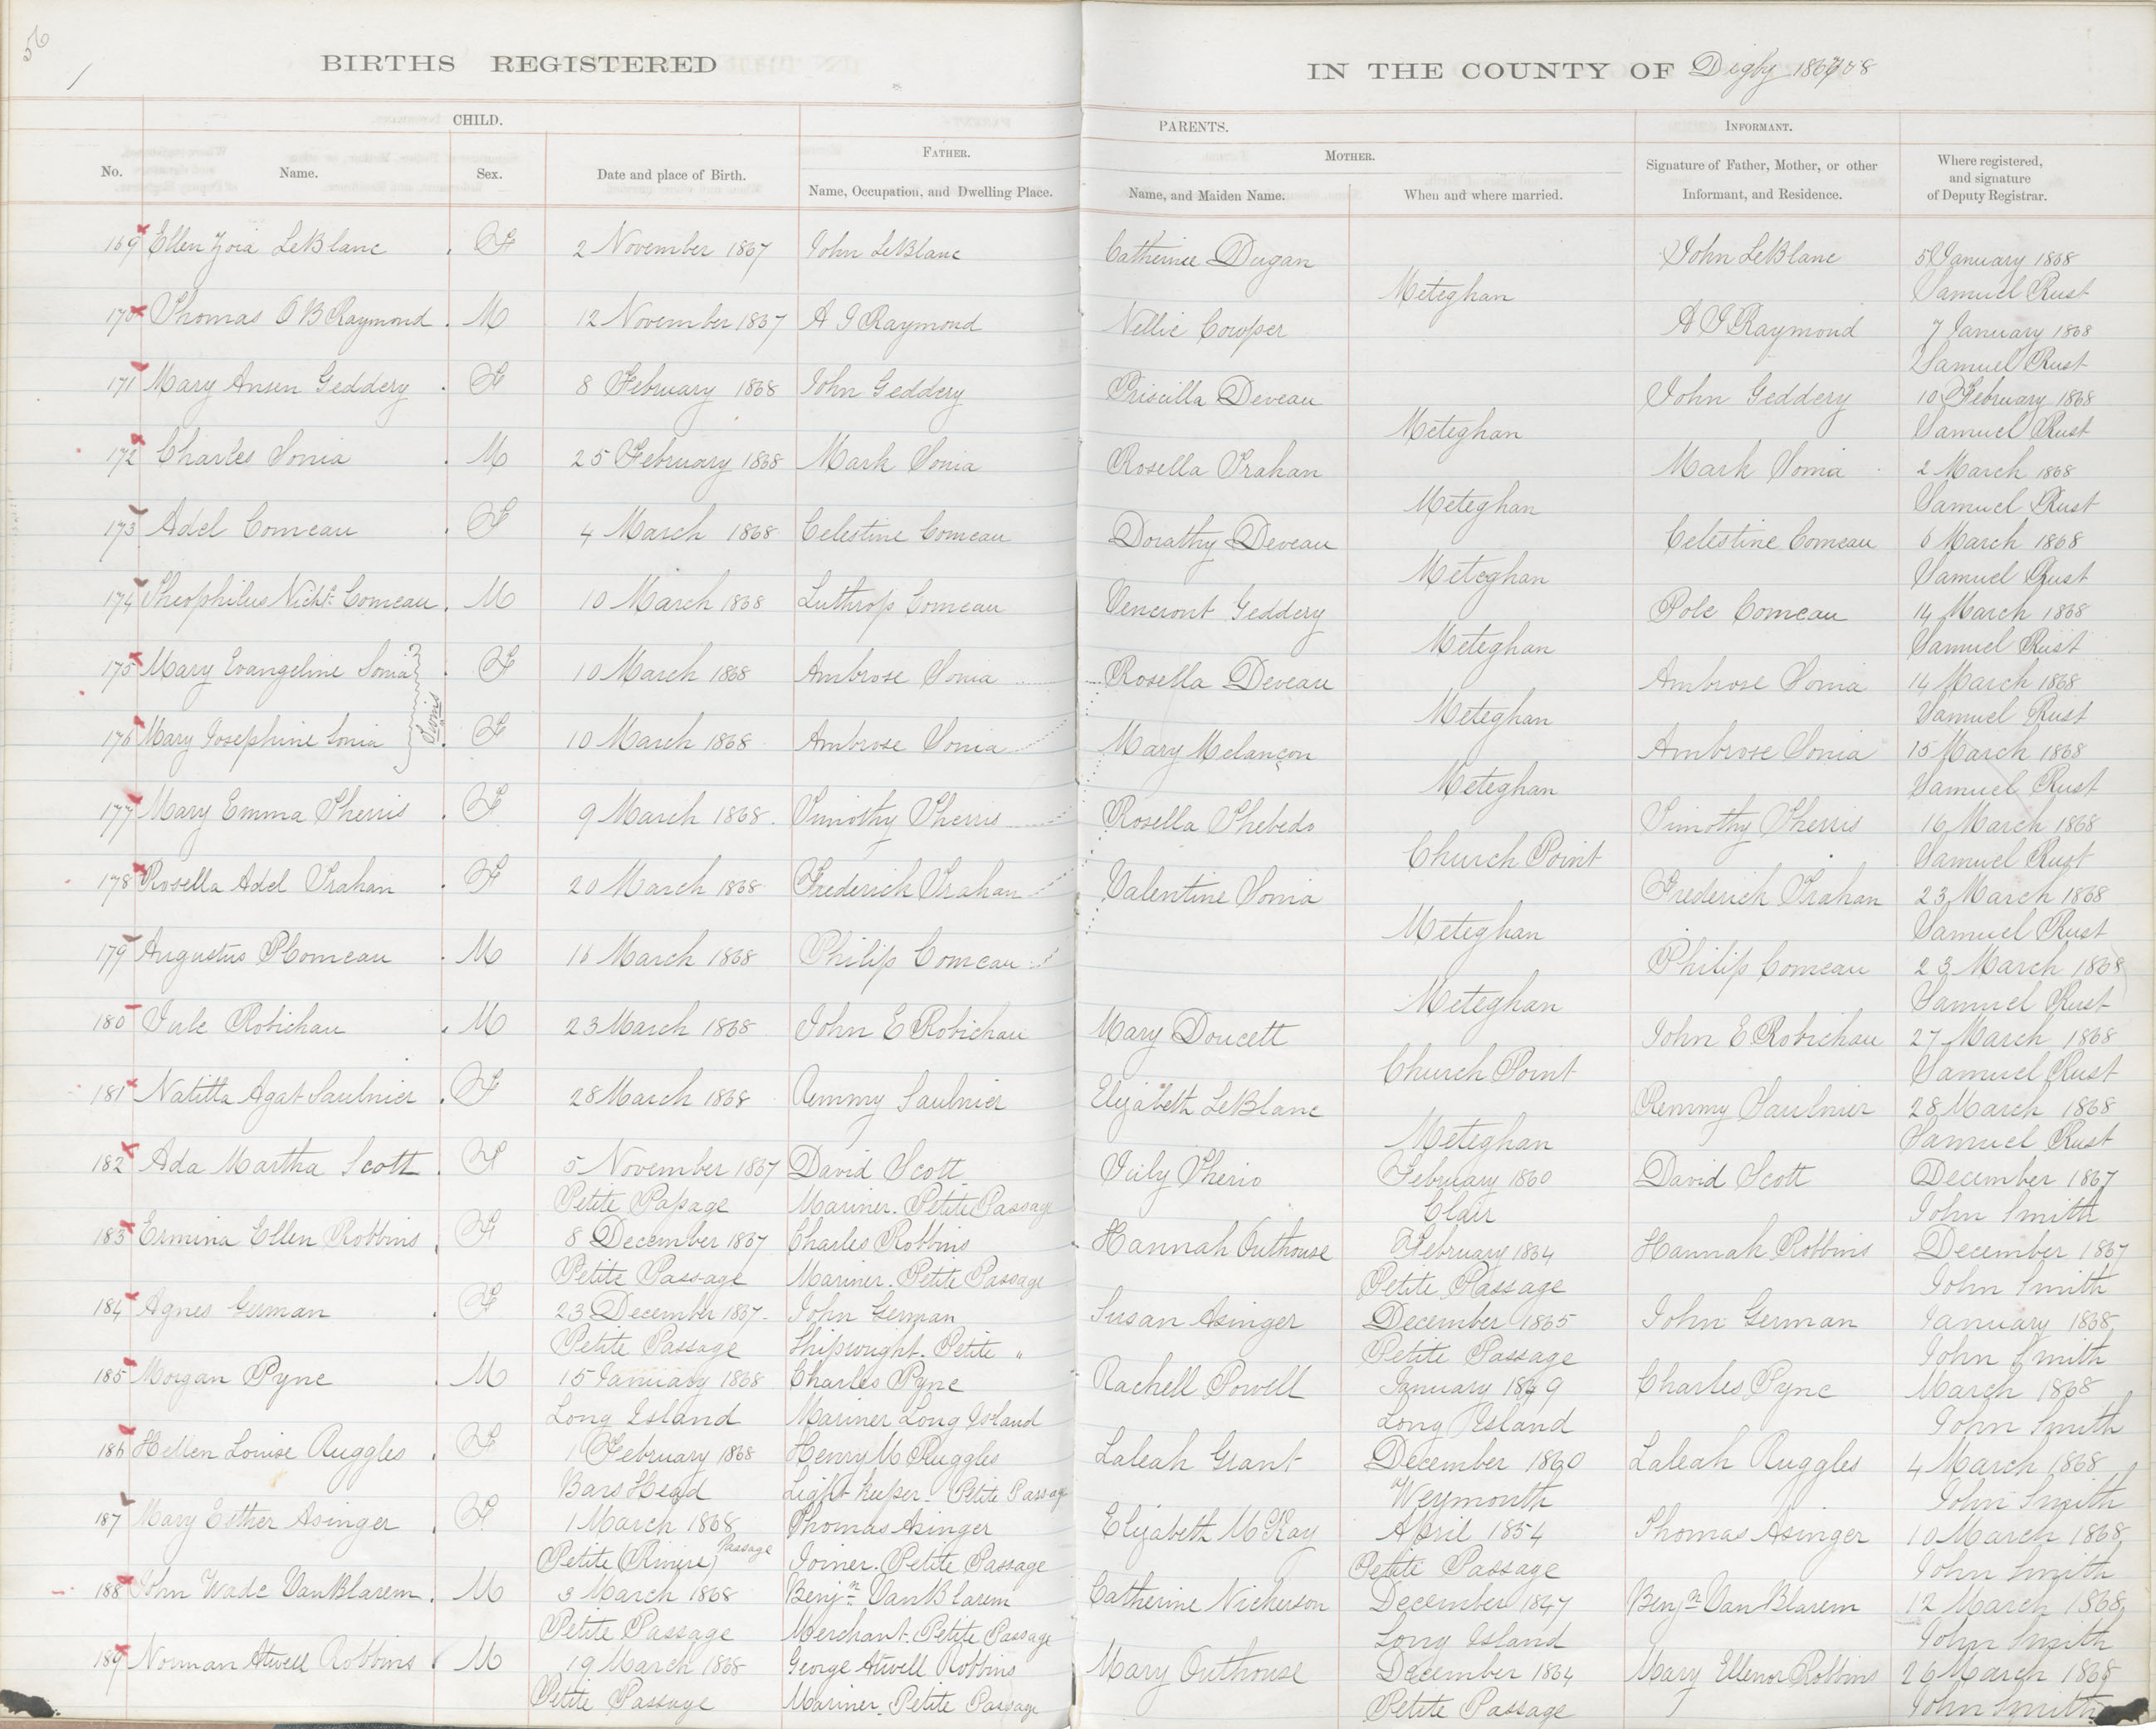 56
1
BIRTHS REGISTERED IN THE COUNTY OF Digby 1867 08
CHILD. PARENTS. INFORMANT.
FATHER. MOTHER.
No. Name. Sex. Date and place of Birth. Name, Occupation, and Dwelling Place. Name, and Maiden Name. When and where married. Signature of Father, Mother, or other Informant, and Residence. Where registered, and signature of Deputy Registrar.
169 Ellen Zoia LeBlanc F 2 November 1867 John LeBlanc Catherine Dugan John LeBlanc 5 January 1868
Meteghan Samuel Rust
170 Thomas O B Raymond M 12 November 1867 A I Raymond Nellie Cowper A I Raymond 7 January 1868
Samuel Rust
171 Mary Ansen Geddery F 8 February 1868 John Geddery Priscilla Deveau John Geddery 10 February 1868
Meteghan Samuel Rust
172 Charles Sonia M 25 February 1868 Mark Sonia Rosella Trahan Mark Sonia 2 March 1868
Meteghan Samuel Rust
173 Adel Comeau F 4 March 1868 Celestine Comeau Dorathy Deveau Celestine Comeau 6 March 1868
Meteghan Samuel Rust
174 Theophilus Nichs Comeau M 10 March 1868 Luthrop Comeau Vencront Geddery Pole Comeau 14 March 1868
Meteghan Samuel Rust
175 Mary Evangeline Sonia F 10 March 1868 Ambrose Sonia Rosella Deveau Ambrose Sonia 14 March 1868
Twins
Meteghan Samuel Rust
176 Mary Josephine Sonia F 10 March 1868 Ambrose Sonia Mary Melançon Ambrose Sonia 15 March 1868
Meteghan Samuel Rust
177 Mary Emma Therris F 9 March 1868 Timothy Therris Rosella Thebedo Timothy Therris 16 March 1868
Church Point Samuel Rust
178 Rosella Adel Trahan F 20 March 1868 Frederick Trahan Valentine Sonia Frederick Trahan 23 March 1868
Meteghan Samuel Rust
179 Augustus P Comeau M 16 March 1868 Philip Comeau Philip Comeau 23 March 1868
Meteghan Samuel Rust
180 Jule Robichau M 23 March 1868 John E Robichau Mary Doucett John E Robichau 27 March 1868
Church Point Samuel Rust
181 Natitta Agat Saulnier F 28 March 1868 Remmy Saulnier Elizabeth LeBlanc Remmy Saulnier 28 March 1868
Meteghan Samuel Rust
182 Ada Martha Scott F 5 November 1867 David Scott July Therio February 1860 David Scott December 1867
Petite Passage Mariner. Petite Passage Clair John Smith
183 Ermina Ellen Robbins F 8 December 1867 Charles Robbins Hannah Outhouse February 1864 Hannah Robbins December 1867
Petite Passage Mariner. Petite Passage Petite Passage John Smith
184 Agnes German F 23 December 1867 John German Susan Asinger December 1865 John German January 1868
Petite Passage Shipwright. Petite " Petite Passage John Smith
185 Morgan Pyne M 15 January 1868 Charles Pyne Rachell Powell January 1849 Charles Pyne March 1868
Long Island Mariner Long Island Long Island John Smith
186 Hellen Louise Ruggles F 1 February 1868 Henry M Ruggles Laleah Grant December 1860 Laleah Ruggles 4 March 1868
Bars Head Light Keeper. Petite Passage Weymouth John Smith
187 Mary Esther Asinger F 1 March 1868 Thomas Asinger Elizabeth McKay April 1854 Thomas Asinger 10 March 1868
Petite (Riviere) Passage Joiner. Petite Passage Petite Passage John Smith
188 John Wade VanBlarem M 3 March 1868 Benjn VanBlarem Catherine Nickerson December 1847 Benjn VanBlarem 12 March 1868
Petite Passage Merchant. Petite Passage Long Island John Smith
189 Norman Atwell Robbins M 19 March 1868 George Atwell Robbins Mary Outhouse December 1864 Mary Ellenor Robbins 26 March 1868
Petite Passage Mariner. Petite Passage Petite Passage John Smith